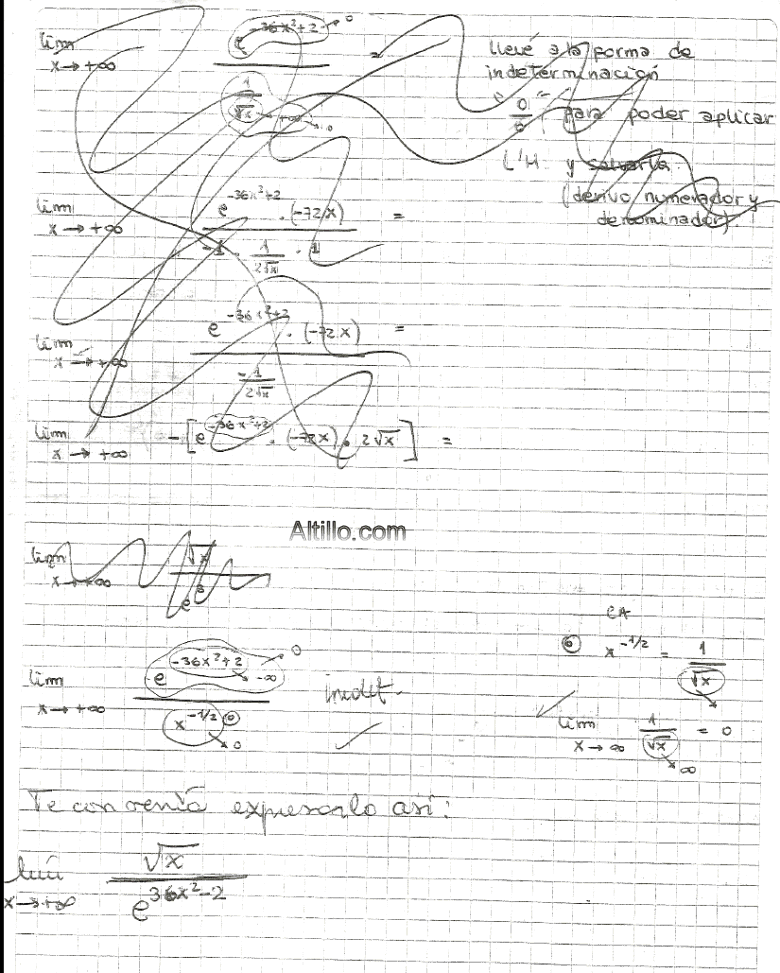 lim x→+∞ e^(-36x²+2) → 0 / (1/√x → +∞) → 0 =
Llevé a la forma de
indeterminación
"0/0" para poder aplicar
L'H y salvarla.
(derivo numerador y
denominador)
lim x→+∞ e^(-36x²+2) · (-72x) / (-1 · 1/(2√x) · 1) =
lim x→+∞ e^(-36x²+2) · (-72x) / (-1/(2√x)) =
lim x→+∞ -[e^(-36x²+2) · (-72x) · 2√x] =
Altillo.com
lim x→+∞ √x / e
CA
x^(-1/2) = 1/√x
lim x→+∞ e^(-36x²+2 → -∞) → 0 / x^(-1/2) → 0 indet.
lim x→∞ 1/√x = 0
→ ∞
Te convenía expresarlo así:
lim x→+∞ √x / e^(36x²-2)